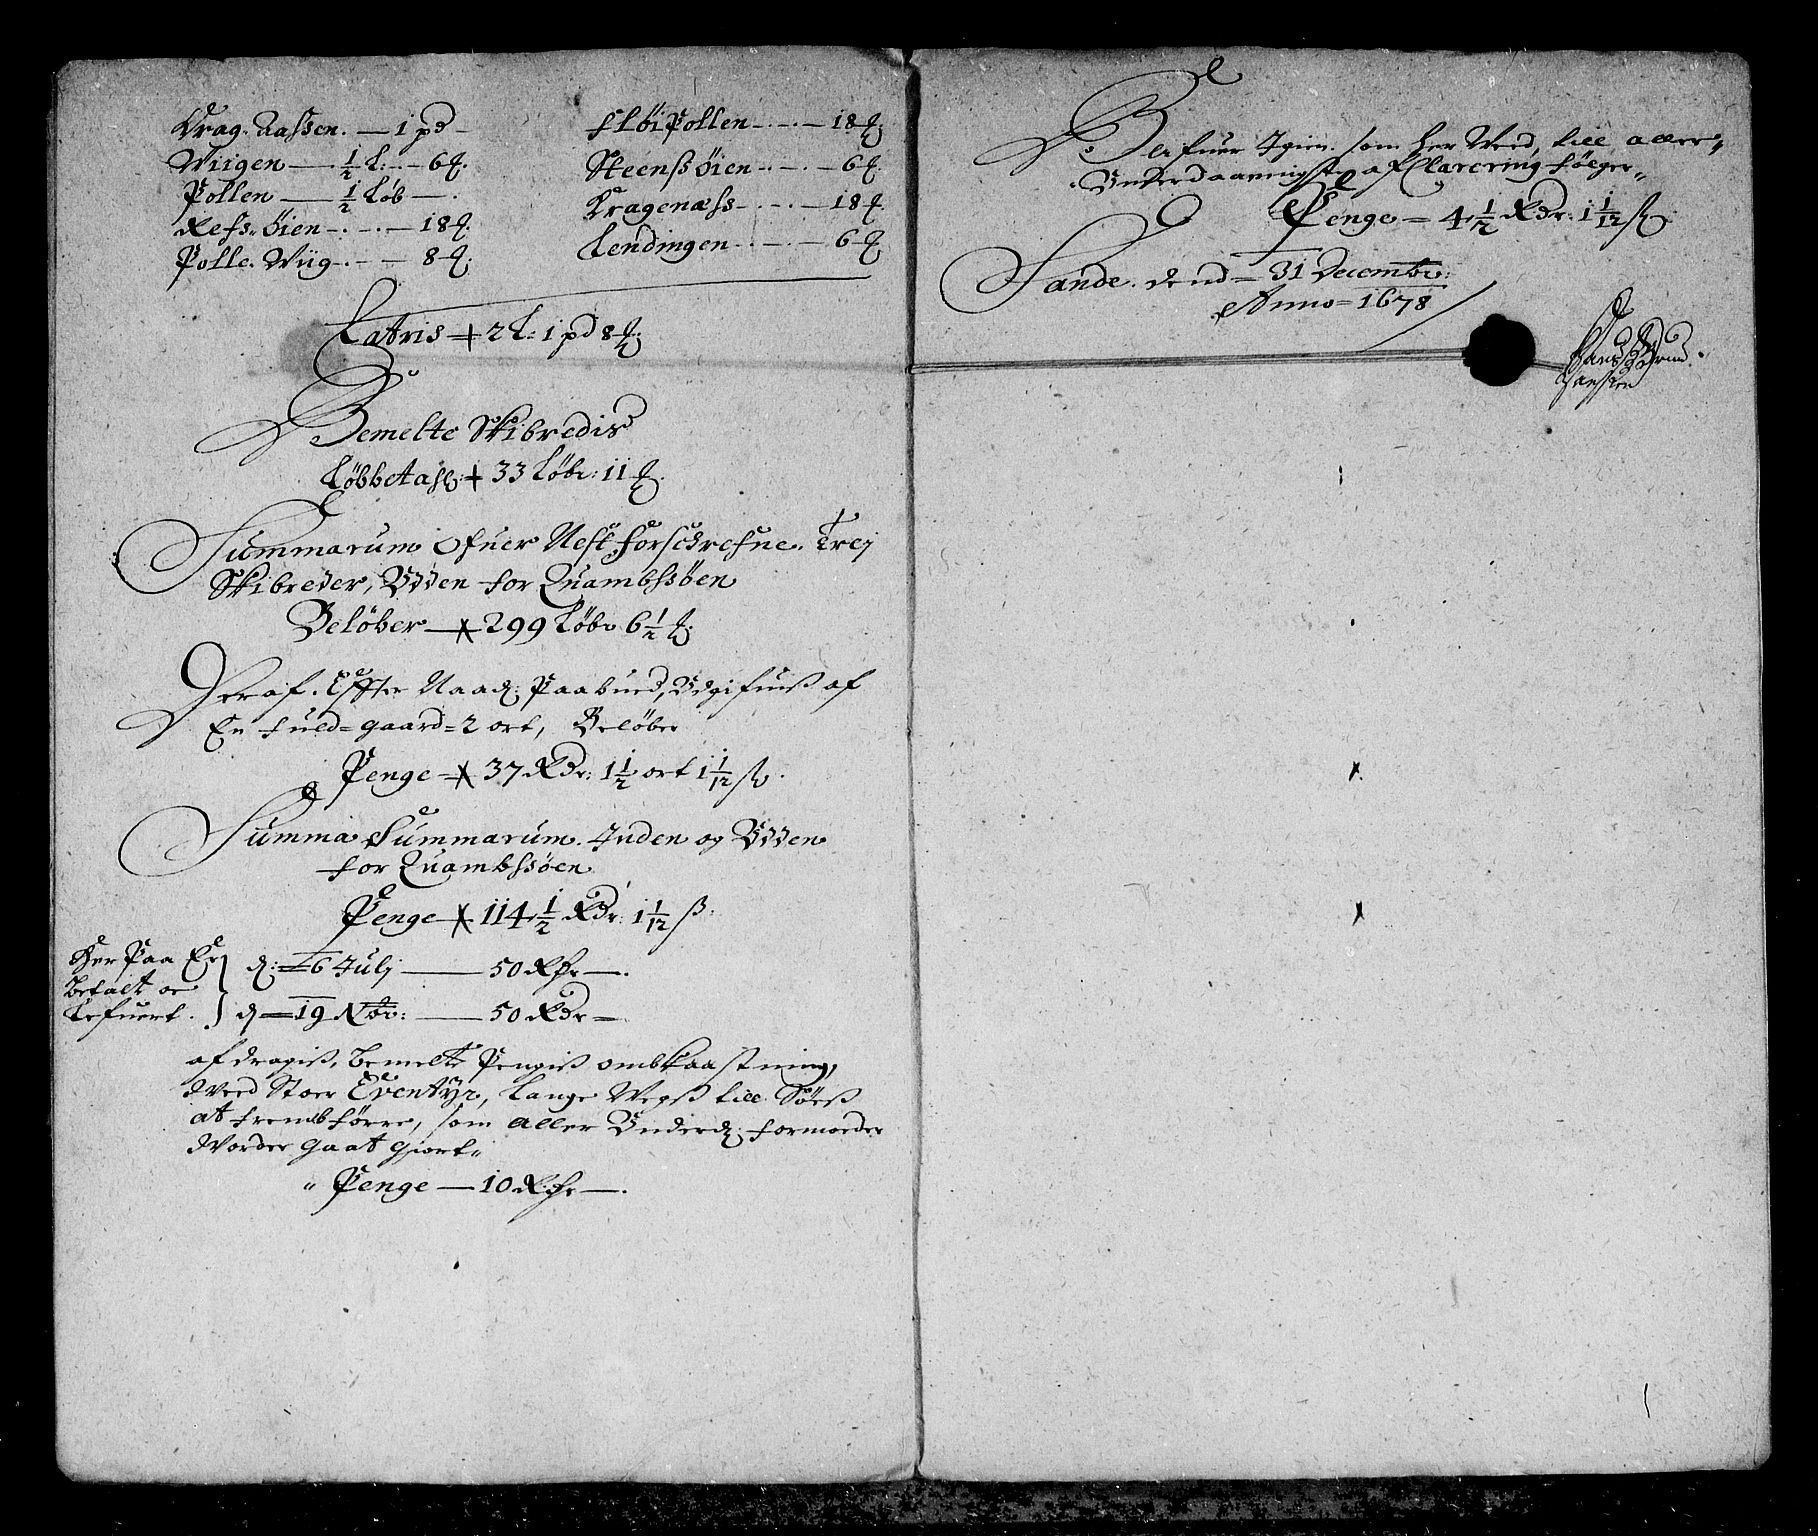 Krag. Aassen. — 1 pd —
Wiigen — ½ L: — 6 ℔.
Pollen — ½ Løb —.
Refs-Øien — . — 18 ℔.
Polle. Wiig — . — 8 ℔.
Fløi Pollen — . — 18 ℔.
Steensøien — . — 6 ℔.
Kragenæss — . — 18 ℔
Lendingen — . — 6 ℔
Latris + 2 L: 1 pd 8 ℔.
Bemelte Skibredis
Løbbetahl: + 33 Løbe: 11 ℔.
Summarum Ofuer Nest forschrefne. Trej
Skibreder, Udden for Quambssøen
Beløber — 299 Løbe 6½ ℔.
Heraf. Effter Naad: Paabued, Udgifuis af
En fuld = gaard = 2 ort, Beløber
Penge — 37 Rdr: 1½ ort 1 1/12 ß.
Summa Summarum. Inden og Udden
for Quambssøen
Penge — 114½ Rdr: 1 1/12 ß:
Her Paa Er
betalt oc
Lefuert.
d: = 6 Julj — 50 Rdr —.
d = 19 Nobr: — 50 Rdr —
afdragis, bemelte Pengis ombkaastning,
Wed Stoer Eventyr, Lange Wegs till Søes
at frembførre, som aller Underd: formoeder
Worder gaat giort
" Penge — 10 Rdr —.
Blifuer Igien. som her Weed, till aller-
Underdaannigste afClarering følger
Penge = 4½ Rdr: 1 1/12 ß
Sande. dend = 31 Decembr:
Anno = 1678
Hanssen